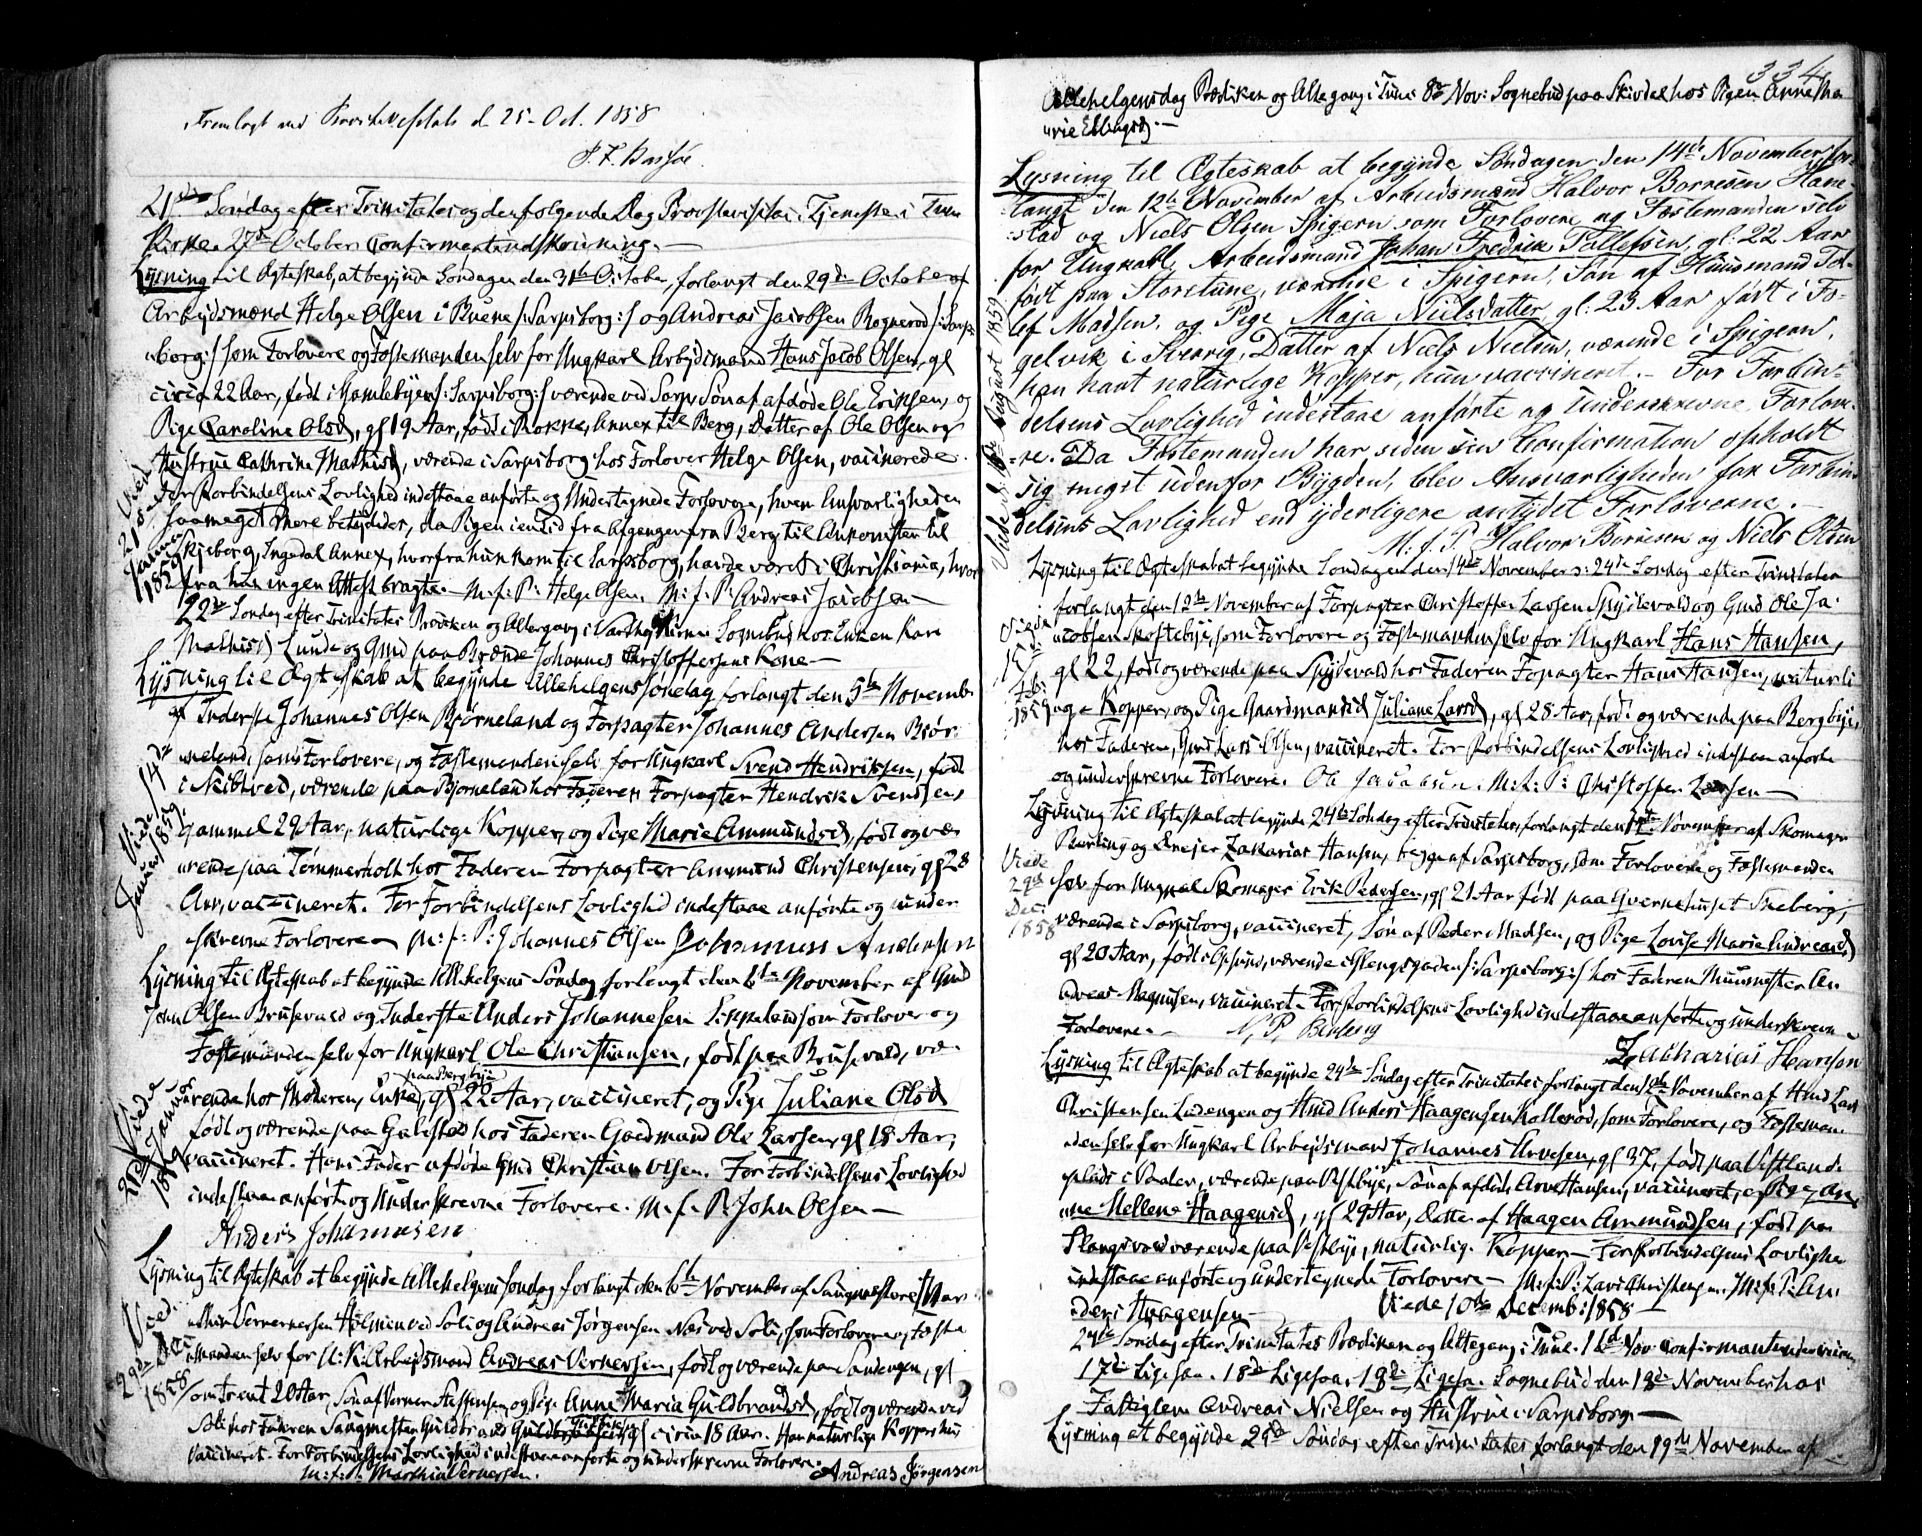 Fremlagt ved Provstevisitats d 25 Oct. 1858
21de Søndag efter Trinitates og den følgende Dag Provstevisitats. Tjeneste i Tune
Kirke. 27de October Confirmantindskrivning.
Lysning til Ægteskab, at begynde Søndagen den 31te October, forlangt den 29de October af
Arbejdsmænd Helge Olsen i Buene /: Sarpsborg :/ og Andreas Jacobsen Rognerød /: Sarps-
borg :/ som Forlovere og Fæstemanden selv for Ungkarl Arbejdsmand Hans Jacob Olsen, gl
circa 22 Aar, født i Gamlebyen /: Sarpsborg :/ værende ved Sarps. Søn af afdøde Ole Eriksen, og
Pige Caroline Olsd, gl 19 Aar, født i Rokke, Annex til Berg, Datter af Ole Olsen og
Hustrue Cathrine Mathisd, værende i Sarpsborg hos Forlover Helge Olsen, vaccinerede.
For Forbindelsens Lovlighed indestaae anførte og Undertegnede Forlovere, hvem Ansvarligheden
saameget mere betydedes, da Pigen i en Tid fra Afgangen fra Berg til Ankomsten til
Skjeberg, Ingedal Annex, hvorfra hun kom til Sarpsborg, havde været i Christiania, hvor
fra hun ingen Attest bragte. M: f: P: Helge Olsen. M: f: P: Andreas Jacobsen
22de Søndag efter Trinitates Prædiken og Altergang i Varteig Kirke. Sognebud hos Enken Kari
Mathisd Lunde og Gmd paa Brænde Johannes Christoffersens Kone
Lysning til Ægteskab at begynde Allehelgens Søndag, forlangt den 5te Novemb:
af Inderste Johannes Olsen Bjørneland og Forpagter Johannes Andersen Bjør
neland, som Forlovere, og Fæstemanden selv for Ungkarl Svend Hendriksen, født
i Skibtved, værende paa Bjørneland hos Faderen Forpagter Hendrik Svendsen,
gammel 29 Aar, naturlige Kopper, og Pige Marie Ammundsd, født og væ-
rende paa Tømmerholt hos Faderen Forpagter Ammund Christensen, gl 28
Aar, vaccineret. For Forbindelsens Lovlighed indestaae anførte og under
skrevne Forlovere. M: f: P: Johannes Olsen Johannes Andersen
Lysning til Ægteskab at begynde Allehelgens Søndag forlangt den 6te November af Gmd
John Olsen Brusevald og Inderste Anders Johannesen som Forlovere og
Fæstemanden selv for Ungkarl Ole Christiansen, født paa Brusevald, væ-
paa Bergbye
rende hos Moderen, Enke, gl 22 Aar, vaccineret, og Pige Juliane Olsd
født og værende paa Galested hos Faderen Gaardmand Ole Larsen, gl 18 Aar,
vaccineret. Hans Fader afdøde Gmd Christian Olsen. For Forbindelsens Lovlighed
indestaae anførte og Underskrevne Forlovere. M. f. P. John Olsen
Anders Johannesen
Lysning til Ægteskab at begynde Allehelgens Søndag forlangt den 6te November af
Vernersen Holmen ved Soli og Andreas Jørgensen Næs ved Soli, som Forlovere og Fæste
manden selv for U: K: Arbejdsmand Andreas Vernersen, født og værende paa Sandengen, gl
omtrent 20 Aar, Søn af Verner Steffensen og Pige Anne Maria Guldbrandsd, født og værende ved
Soli hos Faderen Saugmester Guldbrand gl circa 18 Aar. Han naturlige Kopper, hun
vaccineret. For Forbindelsens Lovlighed indestaae anførte og underskrevne Forlovere.
M: f: P. Mathias Vernersen. Andreas Jørgensen
Viet 21de Januar 1859
Viede 14de Januar 1859
Viede 21de Januar 1859
Vied. 29de Dec: 1858
334
Allehelgensdag Prædiken og Altergang i Tune 8de Nov: Sognebud paa Skivdal hos Pigen Anne Ma
rie Ellingsd.
Lysning til Ægteskab at begynde Søndagen den 14de November for-
langt den 12te November af Arbeidsmænd Halvor Børresen Hane-
stad og Niels Olsen Spigern som Forlovere og Fæstemanden selv
for Ungkarl Arbeidsmand Johan Fredrik Tollefsen, gl: 22 Aar
født paa Storetune, værende i Spigern, Søn af Huusmand Tol-
lef Madsen, og Pige Maja Nielsdatter, gl: 23 Aar født i Fo-
gelvik i Sverrig, Datter af Niels Nielsen, værende i Spigern,
han havt naturlige Kopper, hun vaccineret. - For Forbin-
delsens Lovlighed indestaae anførte og Underskrevne Forlove-
re. Da Fæstemanden har siden sin Confirmation opholdt
sig meget udenfor Bygden, blev Ansvarligheden for Forbin-
delsens Lovlighed end yderligere antydet Forloverne.
M. f. P. Halvor Børresen og Niels Olsen
Lysning til Ægteskab at begynde Søndagen den 14de November o: 24de Søndag efter Trinitates
forlangt den 12te November af Forpagter Christoffer Larsen Spydevold og Gmd Ole Ja-
cobsen Skoftebye, som Forlovere og Fæstemanden selv for Ungkarl Hans Hansen,
gl 22, født og værende paa Spydevold hos Faderen Forpagter Hans Hansen, naturli
ge Kopper, og Pige Gaardmandsd Juliane Larsd, gl 28 Aar, født og værende paa Bergbye,
hos Faderen, Gmd Lars Olsen, vaccineret. For Forbindelsens Lovlighed indestaae anførte
og underskrevne Forlovere. Ole Jacobsen. M: f: P: Christoffer Larsen
Lysning til Ægteskab at begynde 24de Søndag efter Trinitates, forlangt den November af Skomager
Berling og Drejer Zakarias Hansen, begge af Sarpsborg, som Forlovere og Fæstemanden
selv for Ungkarl Skomager Erik Pedersen, gl 21 Aar født paa Qvernehuset Skeberg,
værende i Sarpsborg, vaccineret, Søn af Peder Madsen, og Pige Lovise Marie Andreasd,
gl 20 Aar, født i , værende i Slengsgaden /: Sarpsborg :/ hos Faderen Muurmester An
dreas Magnusen, vaccineret. For Forbindelsens Lovlighed indestaae anførte og underskrevne
Forlovere. N. P. Berling
Zacharias Hansen
Lysning til Ægteskab at begynde 24de Søndag efter Trinitates forlangt den November af Hmd Lars
Christensen Ladengen og Hmd Anders Haagensen Kollerød, som Forlovere, og Fæsteman
den selv for Ungkarl Arbejdsmand Johannes Arvesen, gl 37, født paa Vestlands
plads i Vaaler, værende paa Vestbye, Søn af afdøde Arve Hansen, vaccineret, og Pige An
ne Hellene Haagensd, gl 29 Aar, Datter af Haagen Ammundsen, født paa
værende paa Vestbye, naturlig. Kopper - For Forbindelsens Lovlighed
indestaae anførte og undertegnede Forlovere - M: f: P: Lars Christensen. M: f: P: An
ders Haagensen
Viede 10de Decemb: 1858
24de Søndag efter Trinitates Prædiken og Altegang i Tune. 16de Nov Confirmantunderviisn.
17de Ligesaa. 18de Ligesaa, 19de Ligesa. Sognebud den 19de November hos
Fattiglem Andreas Nielsen og Hustrue i Sarpsborg.
Lysning at begynde 25de Søndag efter Trinitates forlangt den 19de November af
Viede d. 16de August 1859
Viede Feb: 1859
Viede 29de Dec: 1858